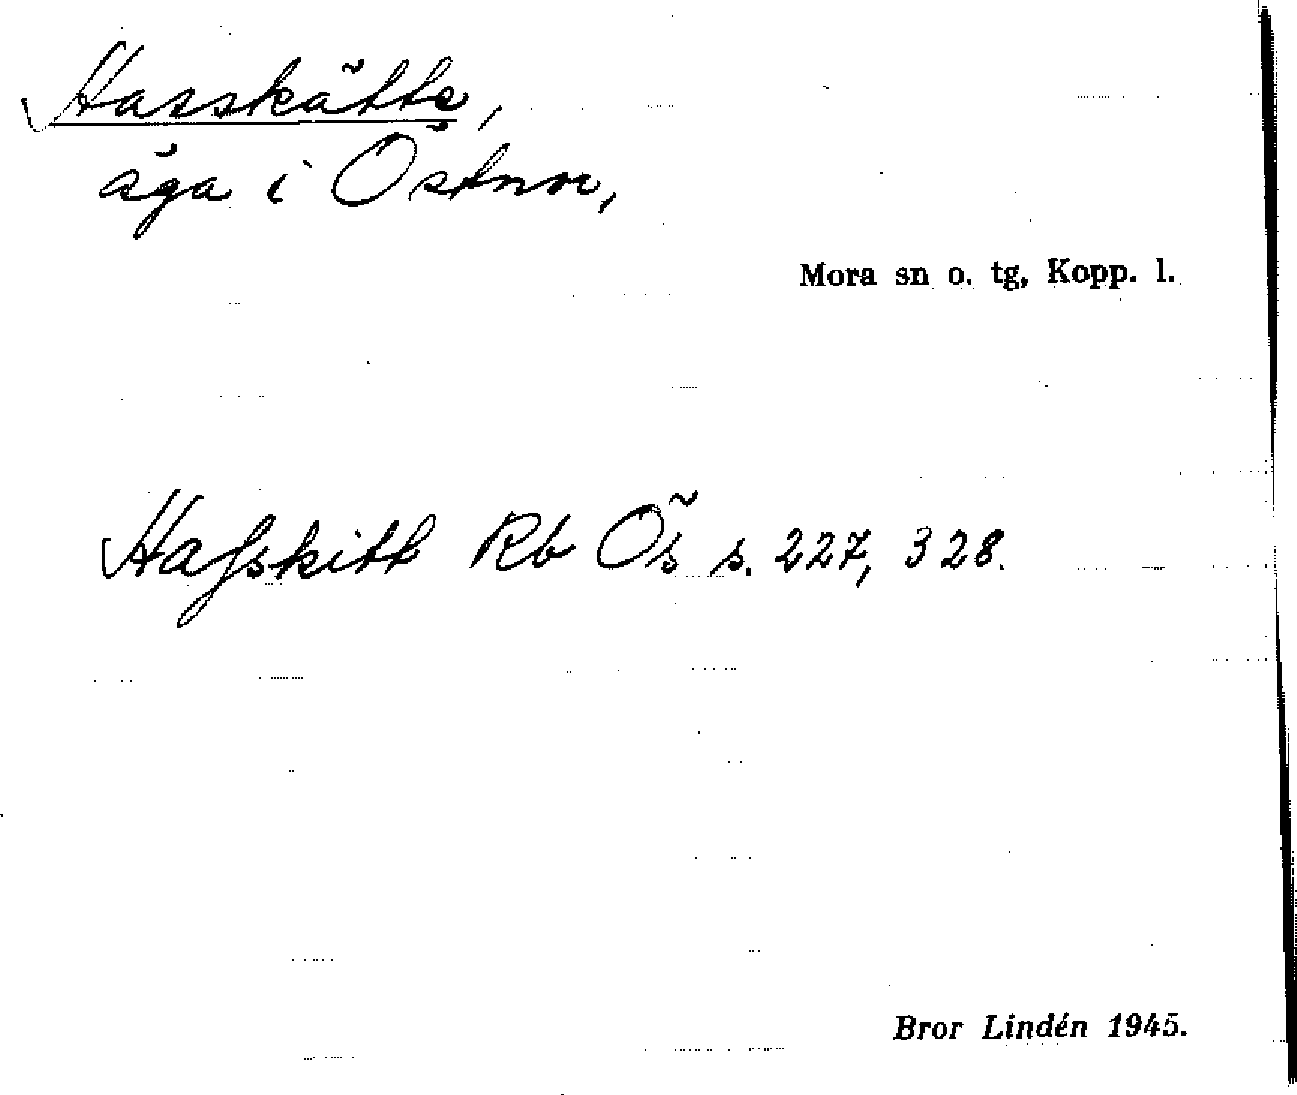 Hasskätte,
äga i Östnor,
Mora sn o. tg, Kopp. l.
Hafskitt Rb Ös s. 227, 328.
Bror Lindén 1945.